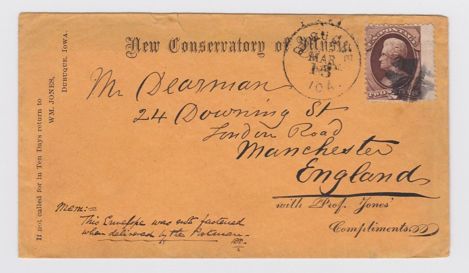 New Conservatory of Music.
DUBUQUE
MAR
IOA.
Mr Dearman
24 Downing St
London Road
Manchester
England
with Prof. Jones'
Compliments.
Mem:-
This Envelope was not fastened
when delivered by the Postman.
If not called for in Ten Days return to
WM. JONES,
DUBUQUE, IOWA.